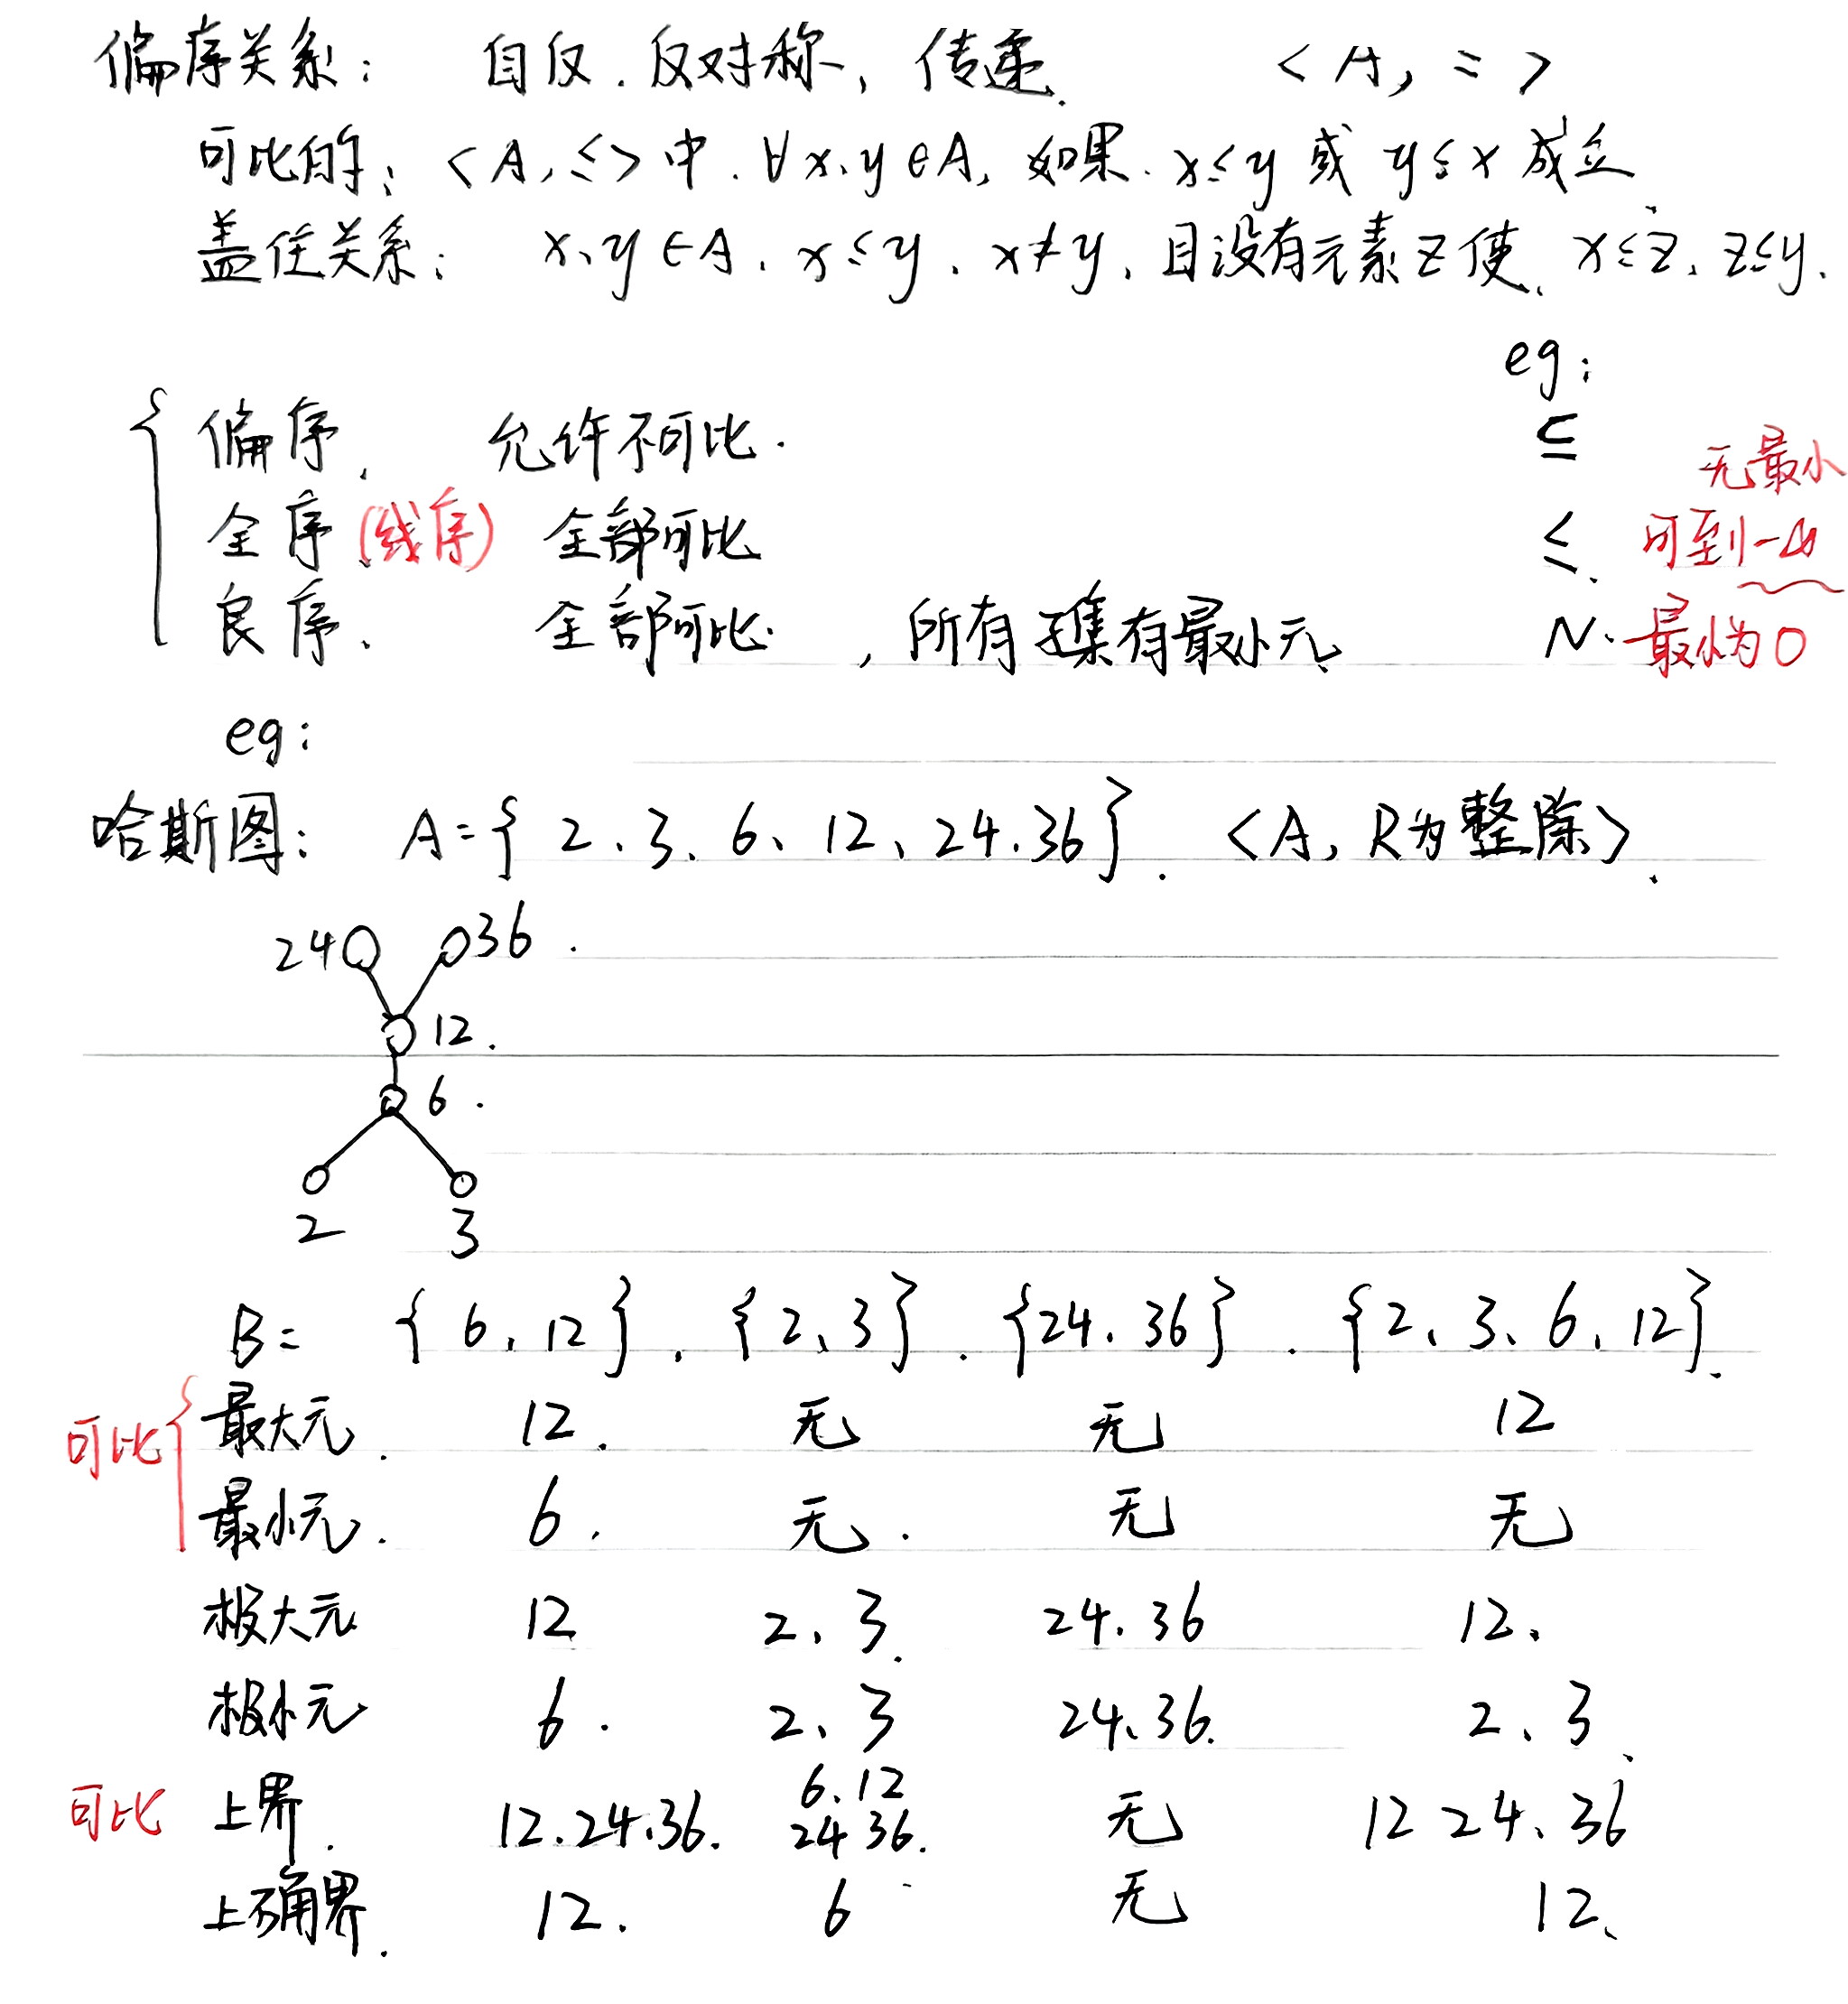 偏序关系： 自反．反对称，传递． <A, ≤>
可比的：<A,≤>中．∀x、y∈A，如果．x≤y 或 y≤x 成立．
盖住关系： x、y∈A．x≤y．x≠y，且没有元素z使．x≤z．z≤y．
eg：
偏序． 允许不可比． ⊆ 无最小
全序（线序） 全部可比 ≤． 可到-∞
良序． 全部可比．，所有子集有最小元． N．最小为0
eg：
哈斯图： A={2、3、6、12、24．36}．<A，R为整除>．
24 36．
12．
6．
2 3
B= {6、12}．{2、3}．{24．36}．{2、3、6、12}．
可比 最大元． 12． 无 无 12
最小元． 6． 无． 无 无
极大元 12 2、3． 24．36 12、
极小元 6． 2、3 24、36． 2、3、
6．12
可比 上界． 12．24．36． 24 36． 无 12 24、36
上确界． 12． 6 无 12、